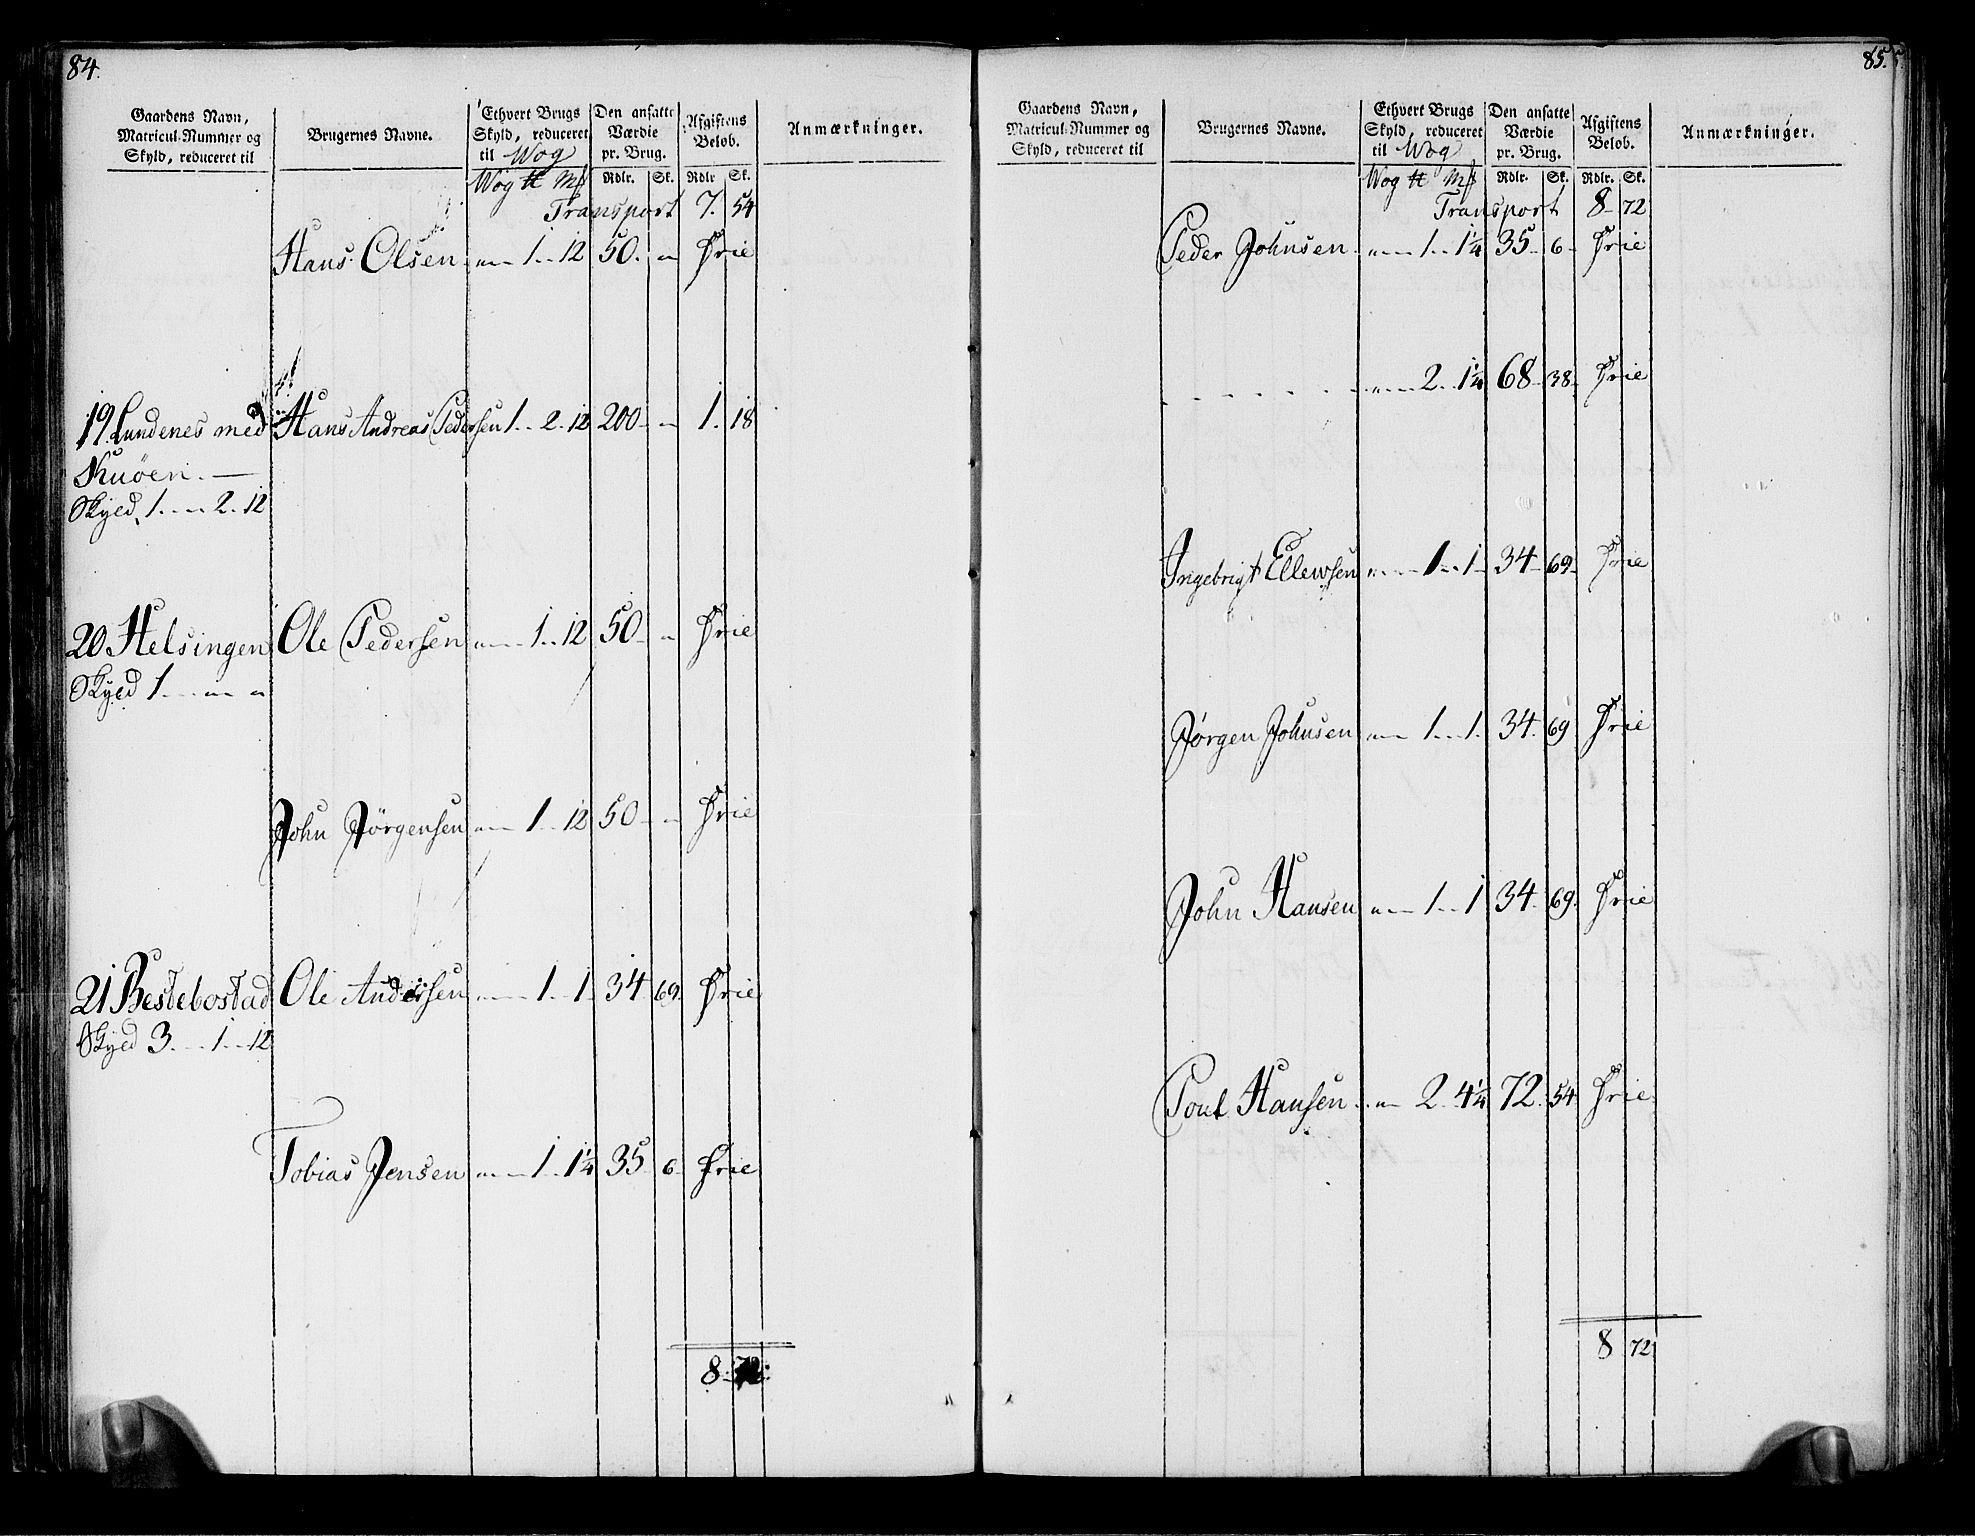 84.
Gaardens Navn,
Matricul-Nummer og
Skyld, reduceret til
Brugernes Navne.
Ethvert Brugs
Skyld, reduceret
til Wog
Den ansatte
Værdie
pr. Brug.
Afgiftens
Beløb.
Anmærkninger.
Wog ℔ Mk Rdlr. Sk. Rdlr Sk.
Transport 7. 54
Hans Olsen " 1 12 50. " Frie
19. Lundenes med Hans Andreas Pedersen 1 2 12 200 " 1. 18
Skyld 1 " 2 12
20 Helsingen Ole Pedersen " 1 12 50 " Frie
Skyld 1 " "
John Jörgensen " 1 12 50 " Frie
21 Bestebostad Ole Andersen " 1 1 34 69 Frie
Skyld 3 1 12
Tobias Jensen " 1 1¼ 35 6 Frie
8 72
85.
Gaardens Navn,
Matricul-Nummer og
Skyld, reduceret til
Brugernes Navne.
Ethvert Brugs
Skyld, reduceret
til Wog
Den ansatte
Værdie
pr. Brug.
Afgiftens
Beløb.
Anmærkninger.
Wog ℔ Mk Rdlr. Sk. Rdlr. Sk.
Transport 8 72
Peder Johnsen " 1 1¼ 35 6 Frie
" 2 1¼ 68 38 Frie
Ingebrigt Ellewsen " 1 1 34 69 Frie
Jørgen Johnsen " 1 1. 34. 69 Frie
John Hansen " 1 1 34 69. Frie
Poul Hansen " 2 4¼ 72 54 Frie
8 72